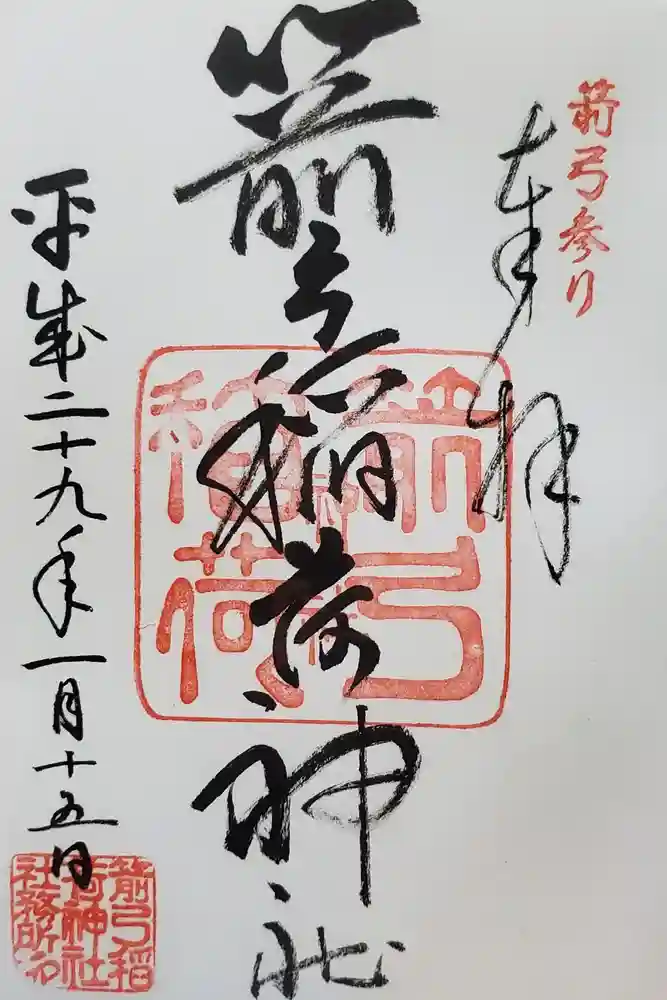 箭弓参り
奉拝
箭弓稲荷神社
箭弓
稲荷
平成二十九年一月十五日
箭弓稲
荷神社
社務所印